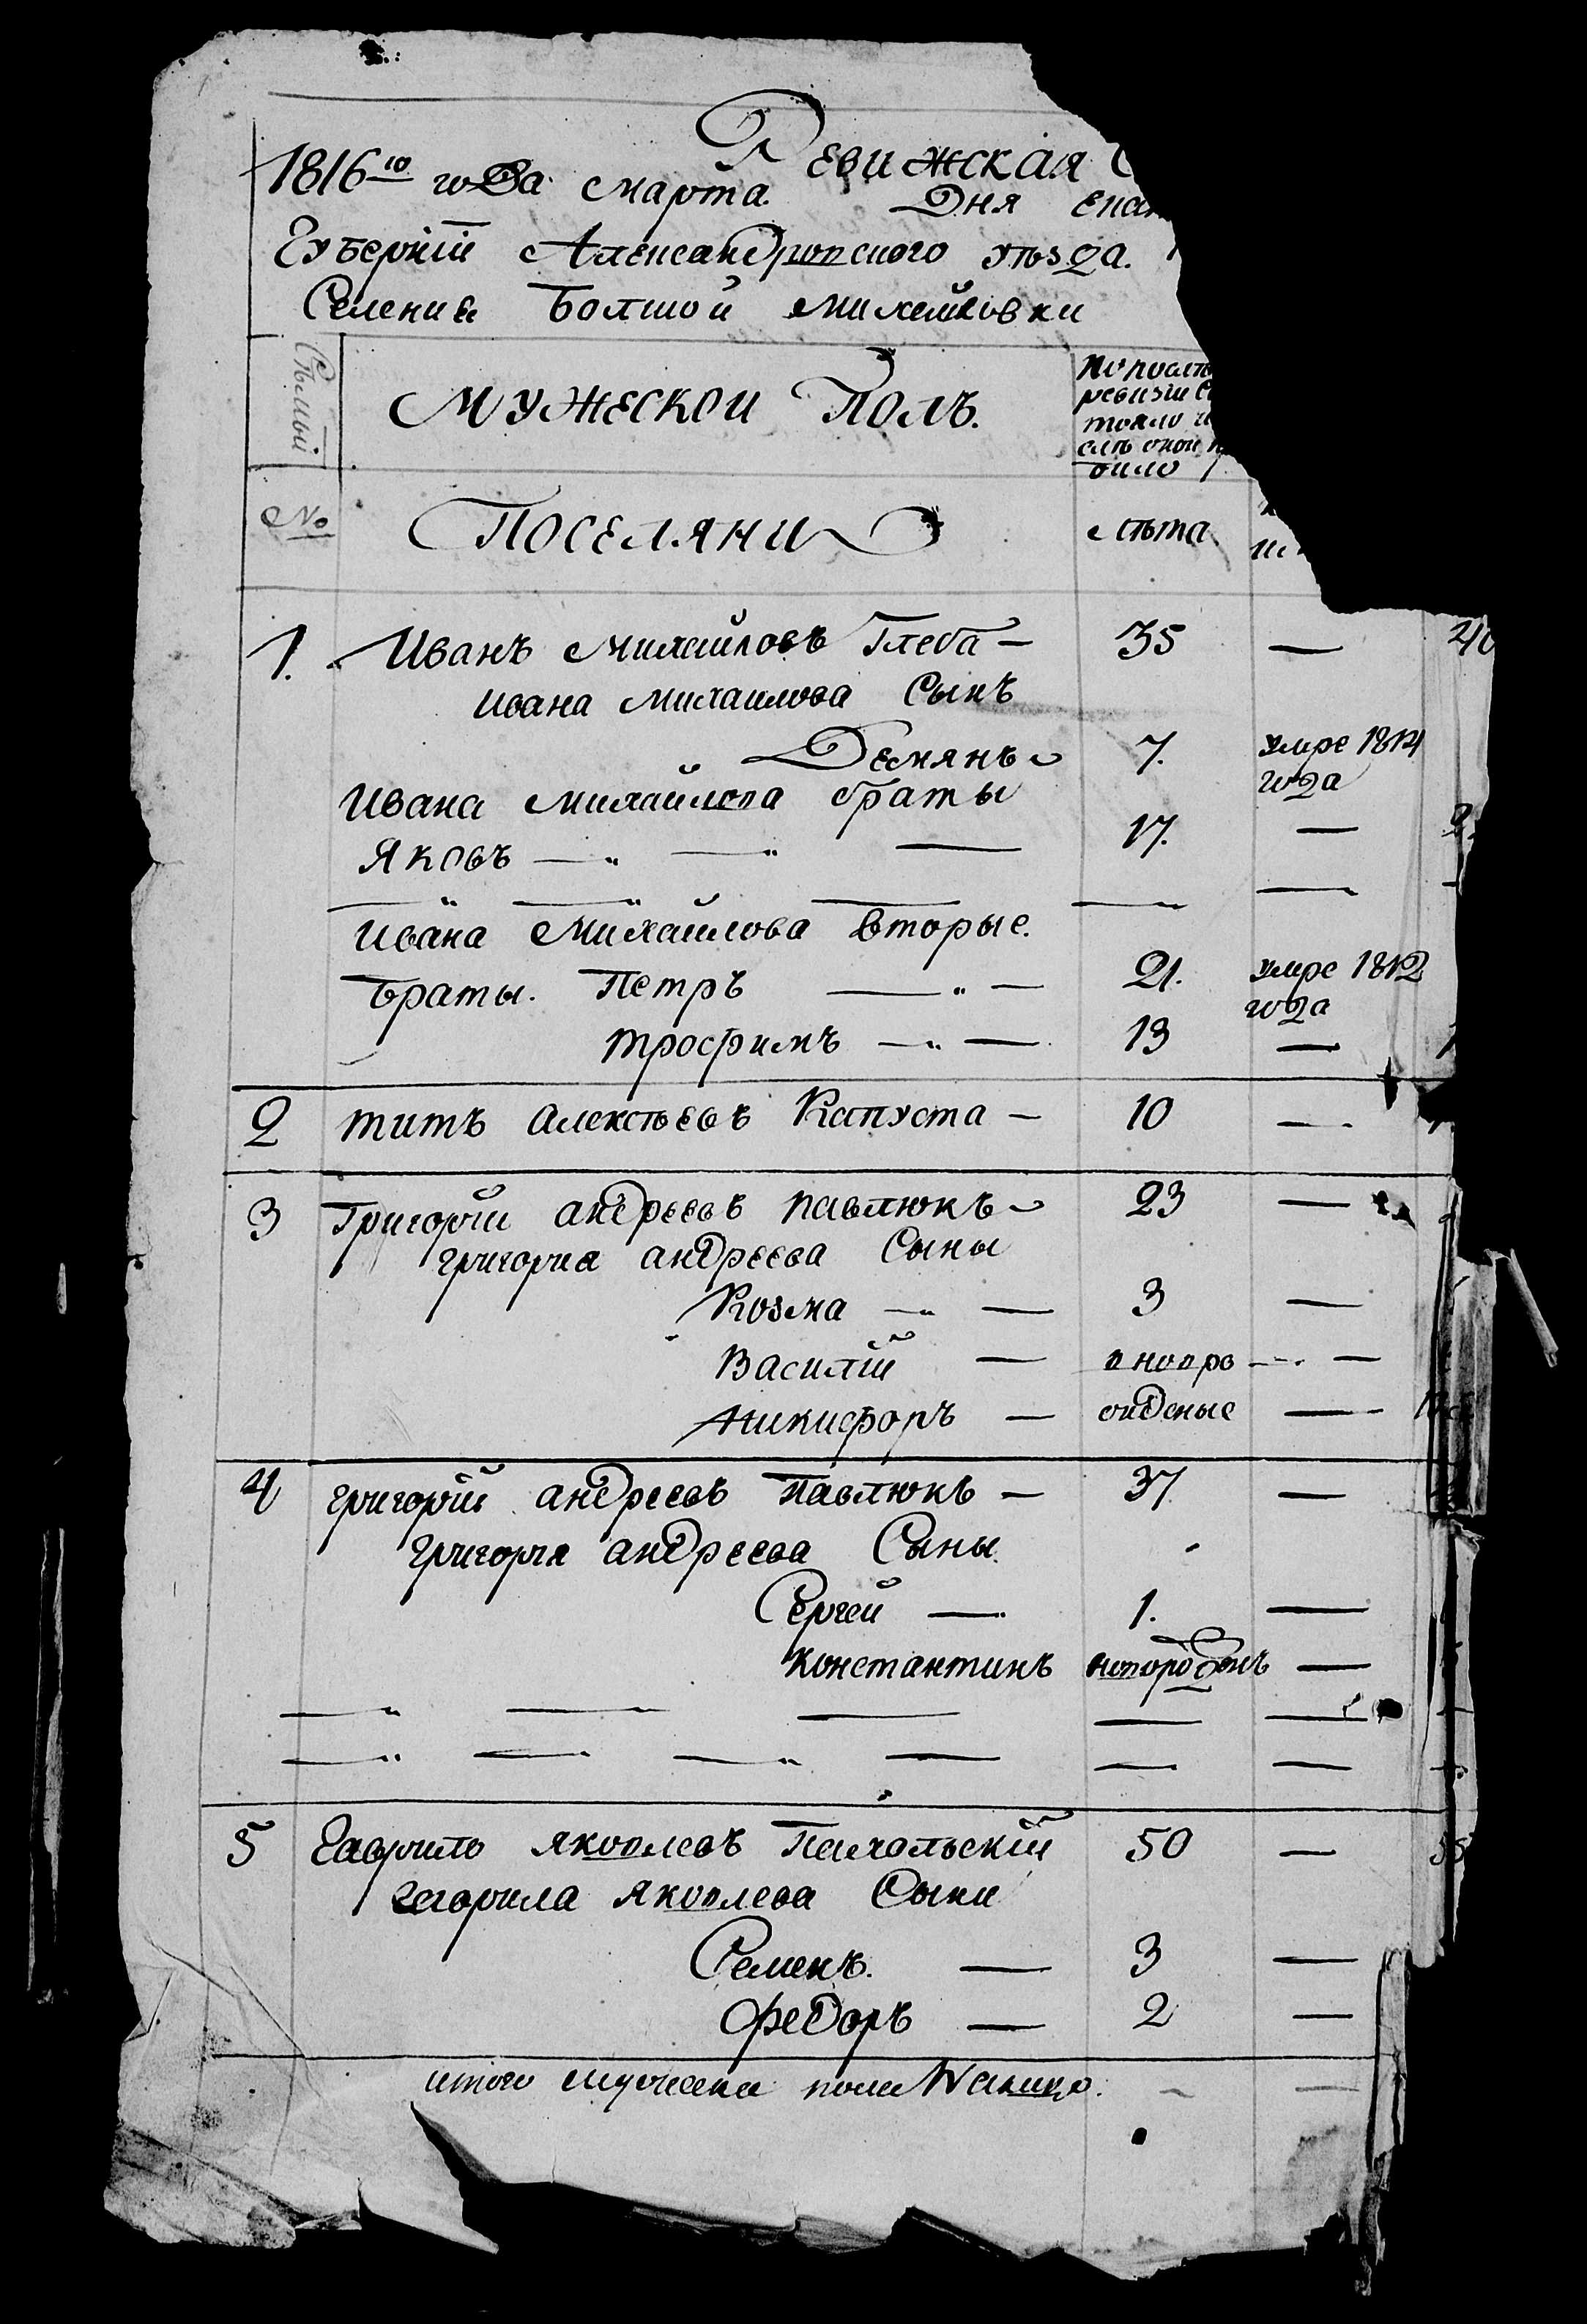 Ревижская С
1816го года Марта Дня Екат
Губернии Александровского уѣзда.
Селение Болшой Михайловки
Сѣмьи
Мужескои Полъ.
По послѣ
ревизіи со
тояло и
слѣ оной п
было
№
Поселяни
Лѣта
1. Иванъ Михайловъ Глеба — 35 — 40
Ивана Михаилова Сынъ
Демянъ 7. умре 1814
года
Ивана Михайлова браты
Яковъ — 17. — 2
Ивана Михайлова вторые.
браты. Петръ — 21. умре 1812
года
Трофимъ — 13 —
2 Титъ Алексѣевъ Капуста — 10 —
3 Григорий Андрѣевъ Павлюкъ 23 —
Григория Андреева Сыны
Козма — 3 —
Василій — вновро —
Никифоръ — жденые —
4 Григорій Андреевъ Павлюкъ — 37 —
Григорія Андреева Сыны.
Сергей — 1. —
Константинъ новорожденъ —
5 Гаврило Яковлевъ Пахольскій 50 — 55
Гаврила Яковлева Сыни
Семенъ. — 3 —
Федоръ — 2 —
итого мужеска пола Налицо.